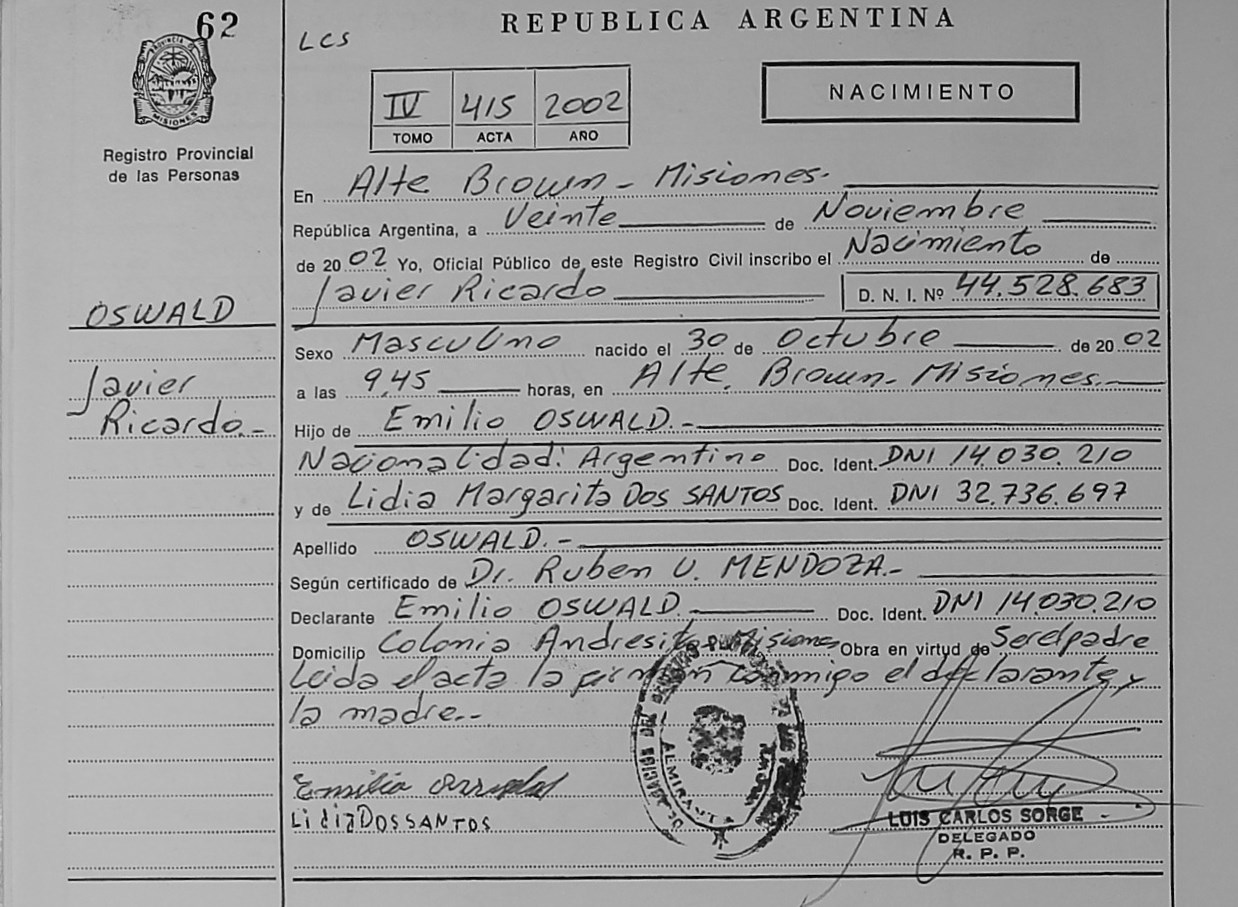 62
LCS
REPUBLICA ARGENTINA
PROVINCIA DE MISIONES
Registro Provincial
de las Personas
IV 415 2002
TOMO ACTA AÑO
NACIMIENTO
En Alte Brown - Misiones.
República Argentina, a Veinte de Noviembre
de 2002 Yo, Oficial Público de este Registro Civil inscribo el Nacimiento de
Javier Ricardo D. N. I. Nº 44.528.683
OSWALD
Javier
Ricardo.-
Sexo Masculino nacido el 30 de Octubre de 2002
a las 9,45 horas, en Alte. Brown - Misiones.
Hijo de Emilio OSWALD.-
Nacionalidad: Argentino Doc. Ident. DNI 14.030.210
y de Lidia Margarita Dos SANTOS Doc. Ident. DNI 32.736.697
Apellido OSWALD.-
Según certificado de Dr. Ruben U. MENDOZA.-
Declarante Emilio OSWALD. Doc. Ident. DNI 14.030.210
Domicilio Colonia Andresito - Misiones Obra en virtud de Ser el padre
Leida el acta la firman conmigo el declarante y
la madre.-
Emilio
Lidia DOS SANTOS
ALMIRANTE
LUIS CARLOS SORGE
DELEGADO
R. P. P.